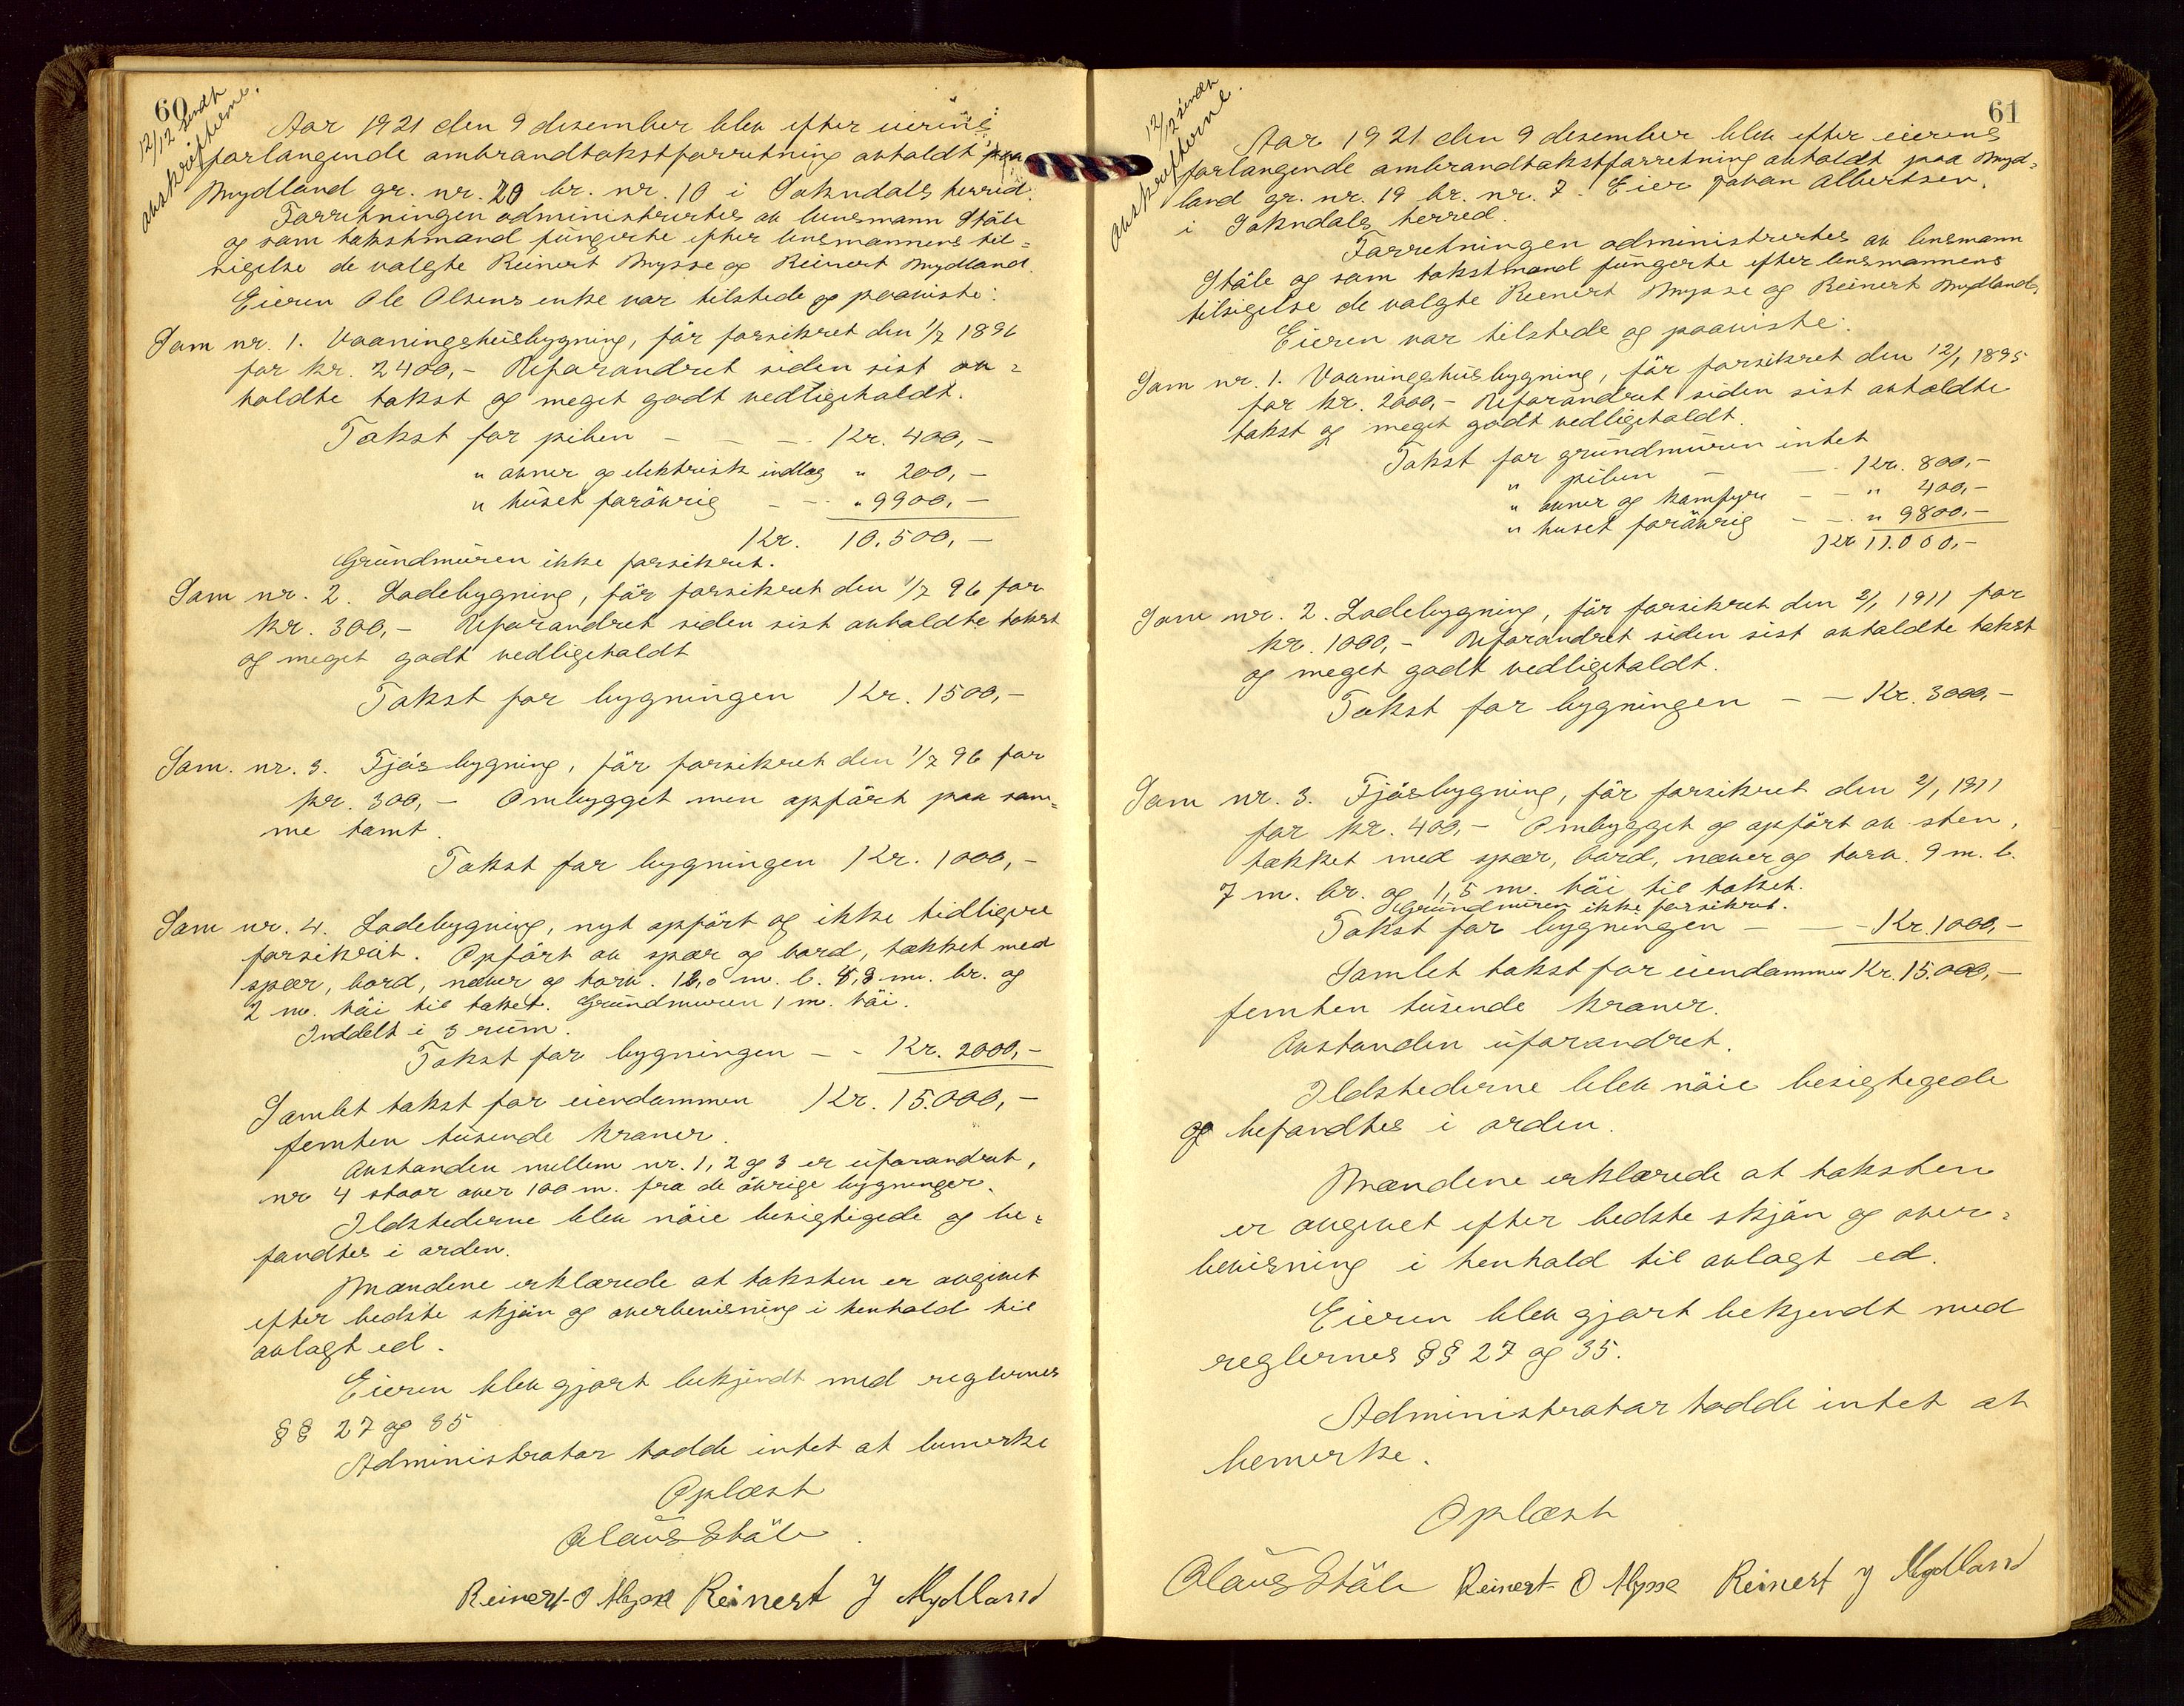 60
12/12 sendt
avskrifterne.
Aar 1921 den 9 desember blev efter eierens
forlangende ombrandtakstforretning avholdt paa
Mydland gr. nr. 20 br. nr. 10 i Sokndals herred.
Forretningen administrertes av lensmann Ståle
og som takstmænd fungerte efter lensmannens til=
sigelse de valgte Reinert Mysse og Reinert Mydland.
Eieren Ole Olsens enke var tilstede og paaviste:
Som nr. 1. Vaaningshusbygning, før forsikret den 1/7 1896
for kr. 2400,- Uforandret siden sist av=
holdte takst og meget godt vedligeholdt.
Takst for piben - - - Kr. 400,-
" ovner og elektrisk indlæg " 200,-
" huset forøvrig - - " 9900,-
Kr. 10.500,-
Grundmuren ikke forsikret.
Som nr. 2. Ladebygning, før forsikret den 1/7 96 for
kr. 300,- Uforandret siden sist avholdte takst
og meget godt vedligeholdt
Takst for bygningen Kr. 1500,-
Som nr. 3. Fjøsbygning, før forsikret den 1/7 96 for
kr. 300,- Ombygget men opført paa sam=
me tomt.
Takst for bygningen Kr. 1000,-
Som nr. 4. Ladebygning, nyt opført og ikke tidligere
forsikret. Opført av spær og bord, tækket med
spær, bord, næver og torv. m. l. m. br. og
2 m. høi til taket. Grundmuren 1 m. høi.
Inddelt i 3 rum.
Takst for bygningen - - Kr. 2000,-
Samlet takst for eiendommen Kr. 15.000,-
femten tusende kroner.
Avstanden mellem nr. 1, 2 og 3 er uforandret,
nr 4 staar over 100 m. fra de øvrige bygninger.
Ildstederne blev nøie besigtigede og be=
fandtes i orden.
Mændene erklærede at taksten er avgivet
efter bedste skjøn og overbevisning i henhold til
avlagt ed.
Eieren blev gjort bekjendt med reglernes
§§ 27 og 35
Administrator hadde intet at bemerke
Oplæst
Olaus Ståle.
Reinert O Mysse Reinert J Mydland
61
12/12 sendt
avskrifterne.
Aar 1921 den 9 desember blev efter eierens
forlangende ombrandtakstforretning avholdt paa Myd=
land gr. nr. 19 br. nr. 7. Eier Johan Albertsen.
i Sokndals herred.
Forretningen administrertes av lensmann
Ståle og som takstmænd fungerte efter lensmannens
tilsigelse de valgte Reinert Mysse og Reinert Mydland.
Eieren var tilstede og paaviste:
Som nr. 1. Vaaningshusbygning, før forsikret den 12/1 1895
for kr. 2000,- Uforandret siden sist avholdte
takst og meget godt vedligeholdt.
Takst for grundmuren intet
" piben - - Kr. 800,-
" ovner og komfyre - - " 400,-
" huset forøvrig - - " 9800,-
Kr 11.000,-
Som nr. 2. Ladebygning, før forsikret den 2/1 1911 for
kr. 1000,- Uforandret siden sist avholdte takst
og meget godt vedligeholdt.
Takst for bygningen - - Kr. 3000,-
Som nr. 3. Fjøsbygning, før forsikret den 2/1 1911
for kr. 400,- Ombygget og opført av sten,
tækket med spær, bord, næver og torv. 9 m. l.
7 m. br. og 1,5 m. høi til taket.
Grundmuren ikke forsikret.
Takst for bygningen - - - Kr. 1000,-
Samlet takst for eiendommen Kr. 15.000,-
femten tusende kroner.
Avstanden uforandret.
Ildstederne blev nøie besigtegede
og befandtes i orden.
Mændene erklærede at taksten
er avgivet efter bedste skjøn og over=
bevisning i henhold til avlagt ed.
Eieren blev gjort bekjendt med
reglernes §§ 27 og 35.
Administrator hadde intet at
bemerke.
Oplæst
Olaus Ståle Reinert O Mysse Reinert J Mydland